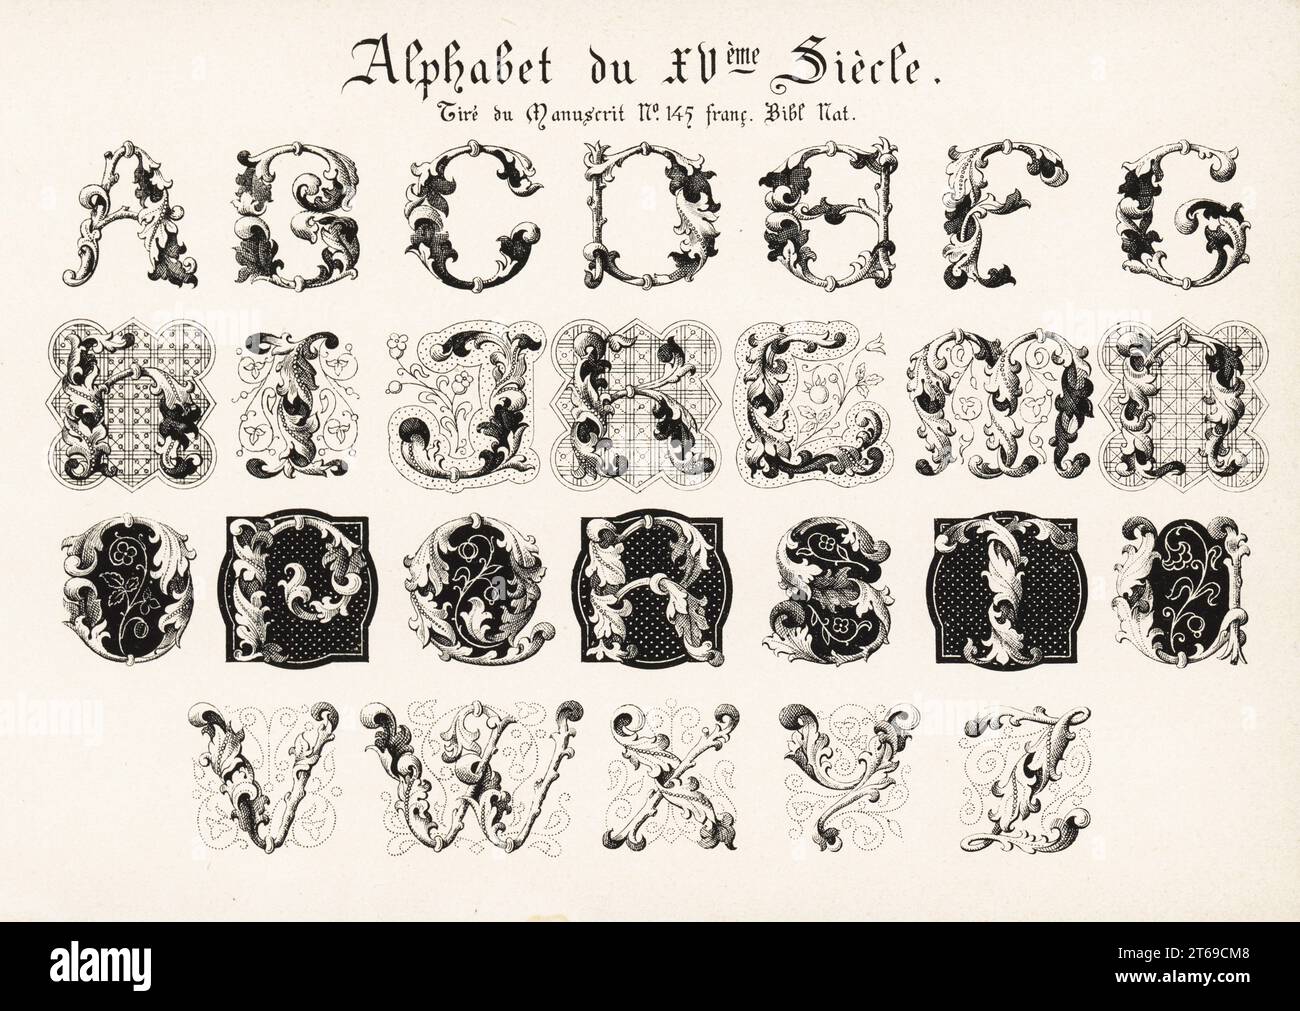 Alphabet du XVème Siècle.
Tiré du Manuscrit No. 145 franç. Bibl Nat.
A B C D E F G
H I J K L M N
O P Q R S T U
V W X Y Z
alamy
Image ID: 2T69CM8
www.alamy.com